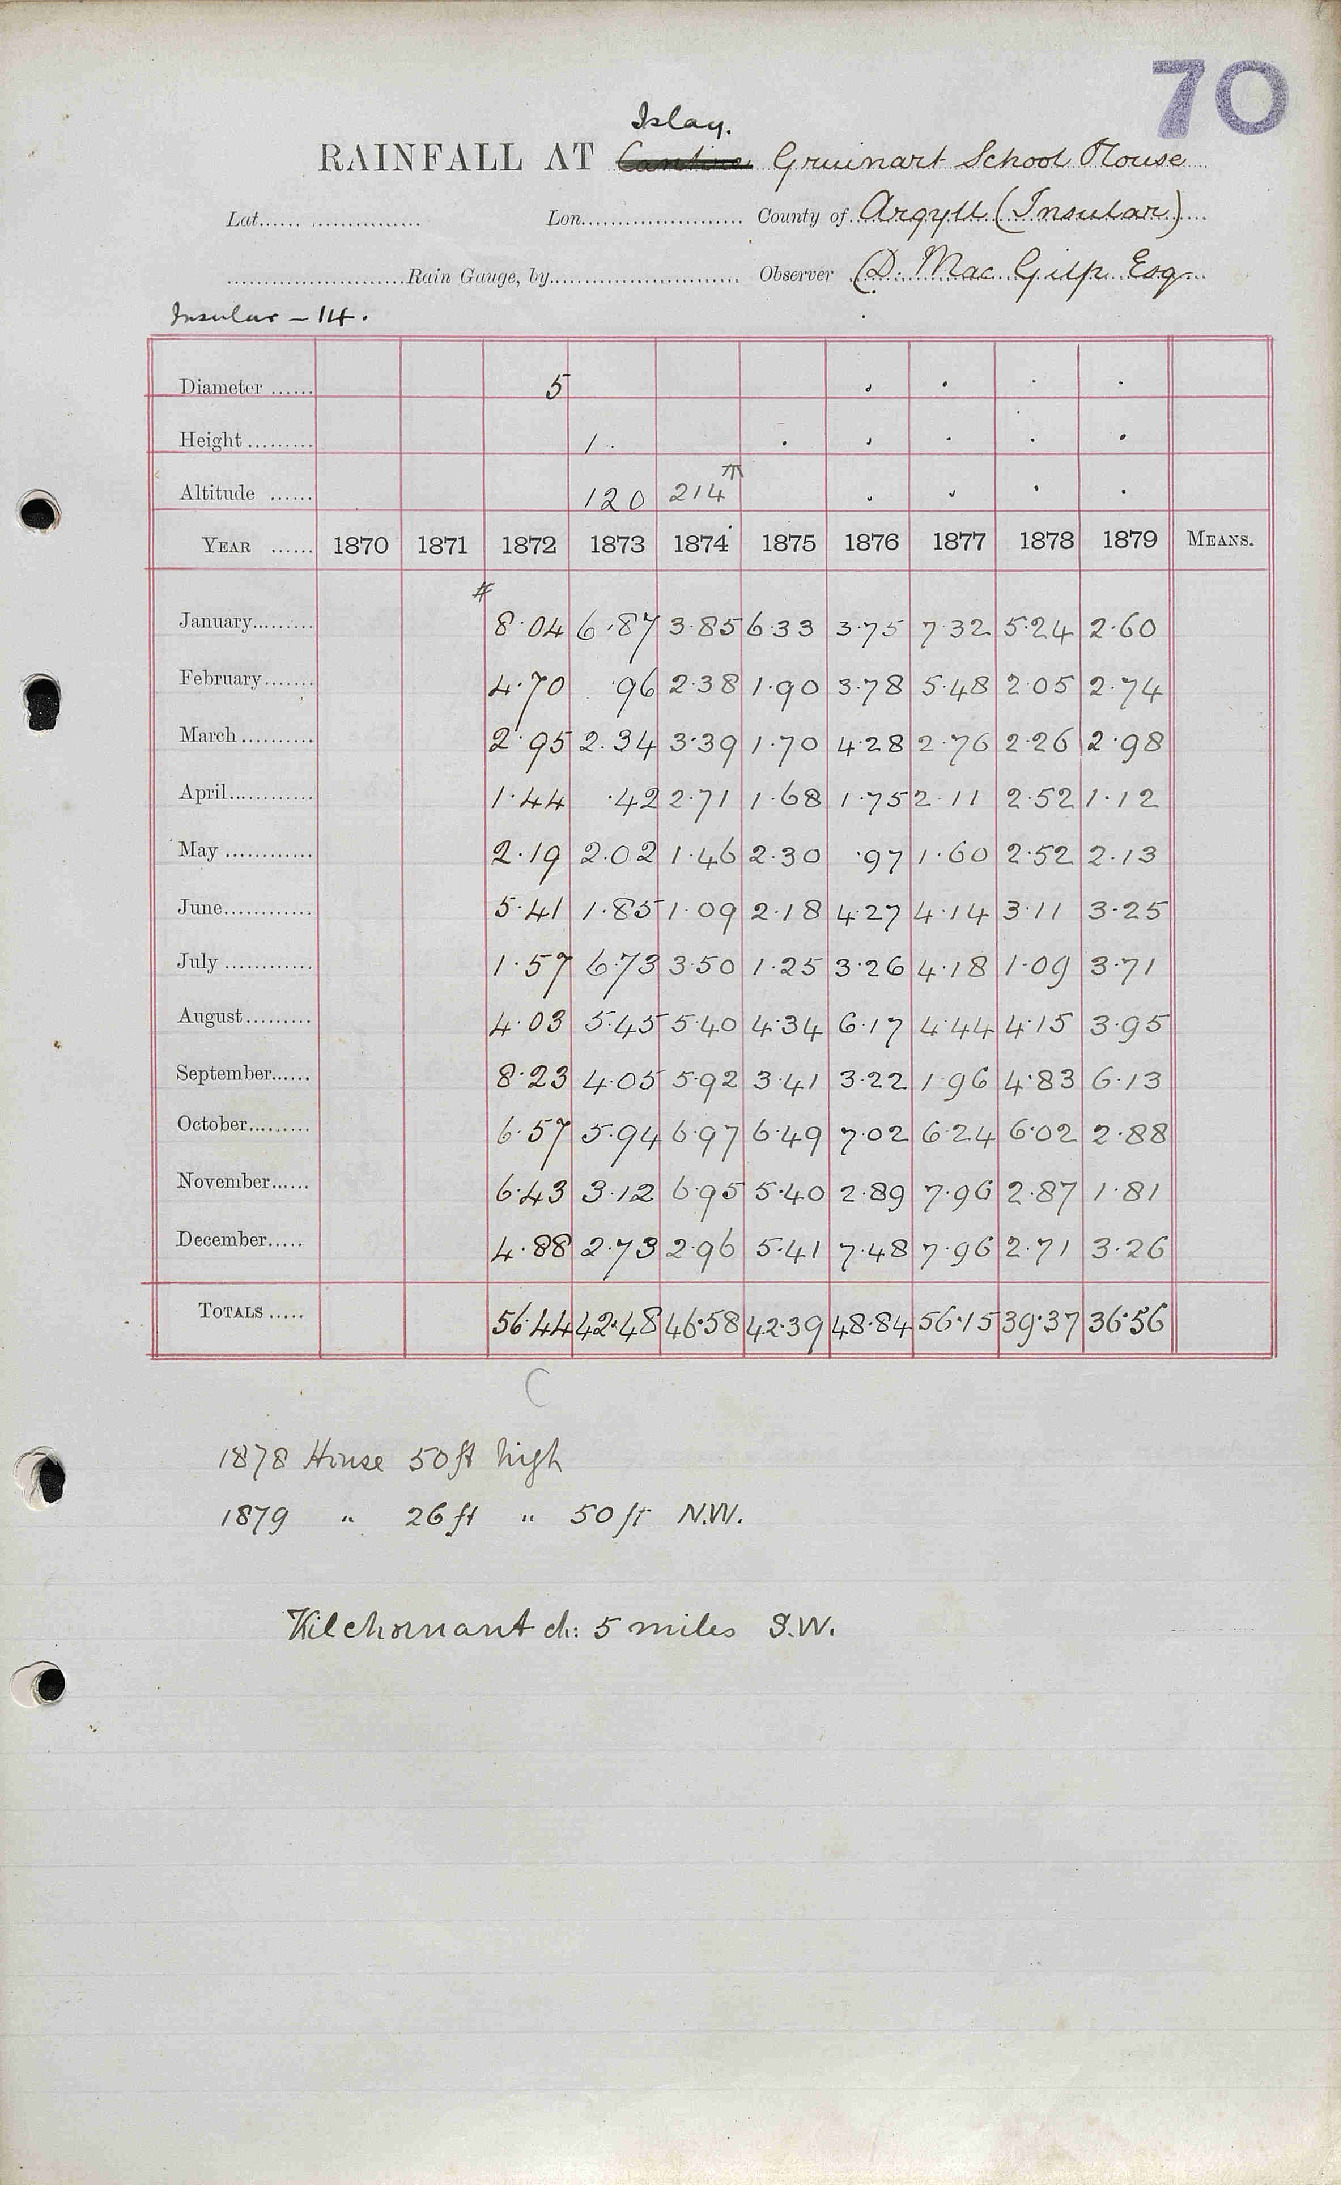 70
Islay.
RAINFALL AT Gruinart School House
Lat. Lon. County of Argyll (Insular)
Rain Gauge, by Observer D. Mac Gilp Esq.
Insular - 14.
Diameter 5
Height 1
Altitude 120 214
YEAR 1870 1871 1872 1873 1874 1875 1876 1877 1878 1879 MEANS.
January 8.04 6.87 3.85 6.33 3.75 7.32 5.24 2.60
February 4.70 .96 2.38 1.90 3.78 5.48 2.05 2.74
March 2.95 2.34 3.39 1.70 4.28 2.76 2.26 2.98
April 1.44 .42 2.71 1.68 1.75 2.11 2.52 1.12
May 2.19 2.02 1.46 2.30 .97 1.60 2.52 2.13
June 5.41 1.85 1.09 2.18 4.27 4.14 3.11 3.25
July 1.57 6.73 3.50 1.25 3.26 4.18 1.09 3.71
August 4.03 5.45 5.40 4.34 6.17 4.44 4.15 3.95
September 8.23 4.05 5.92 3.41 3.22 1.96 4.83 6.13
October 6.57 5.94 6.97 6.49 7.02 6.24 6.02 2.88
November 6.43 3.12 6.95 5.40 2.89 7.96 2.87 1.81
December 4.88 2.73 2.96 5.41 7.48 7.96 2.71 3.26
TOTALS 56.44 42.48 46.58 42.39 48.84 56.15 39.37 36.56
1878 House 50 ft high
1879 " 26 ft " 50 ft N.W.
5 miles S.W.